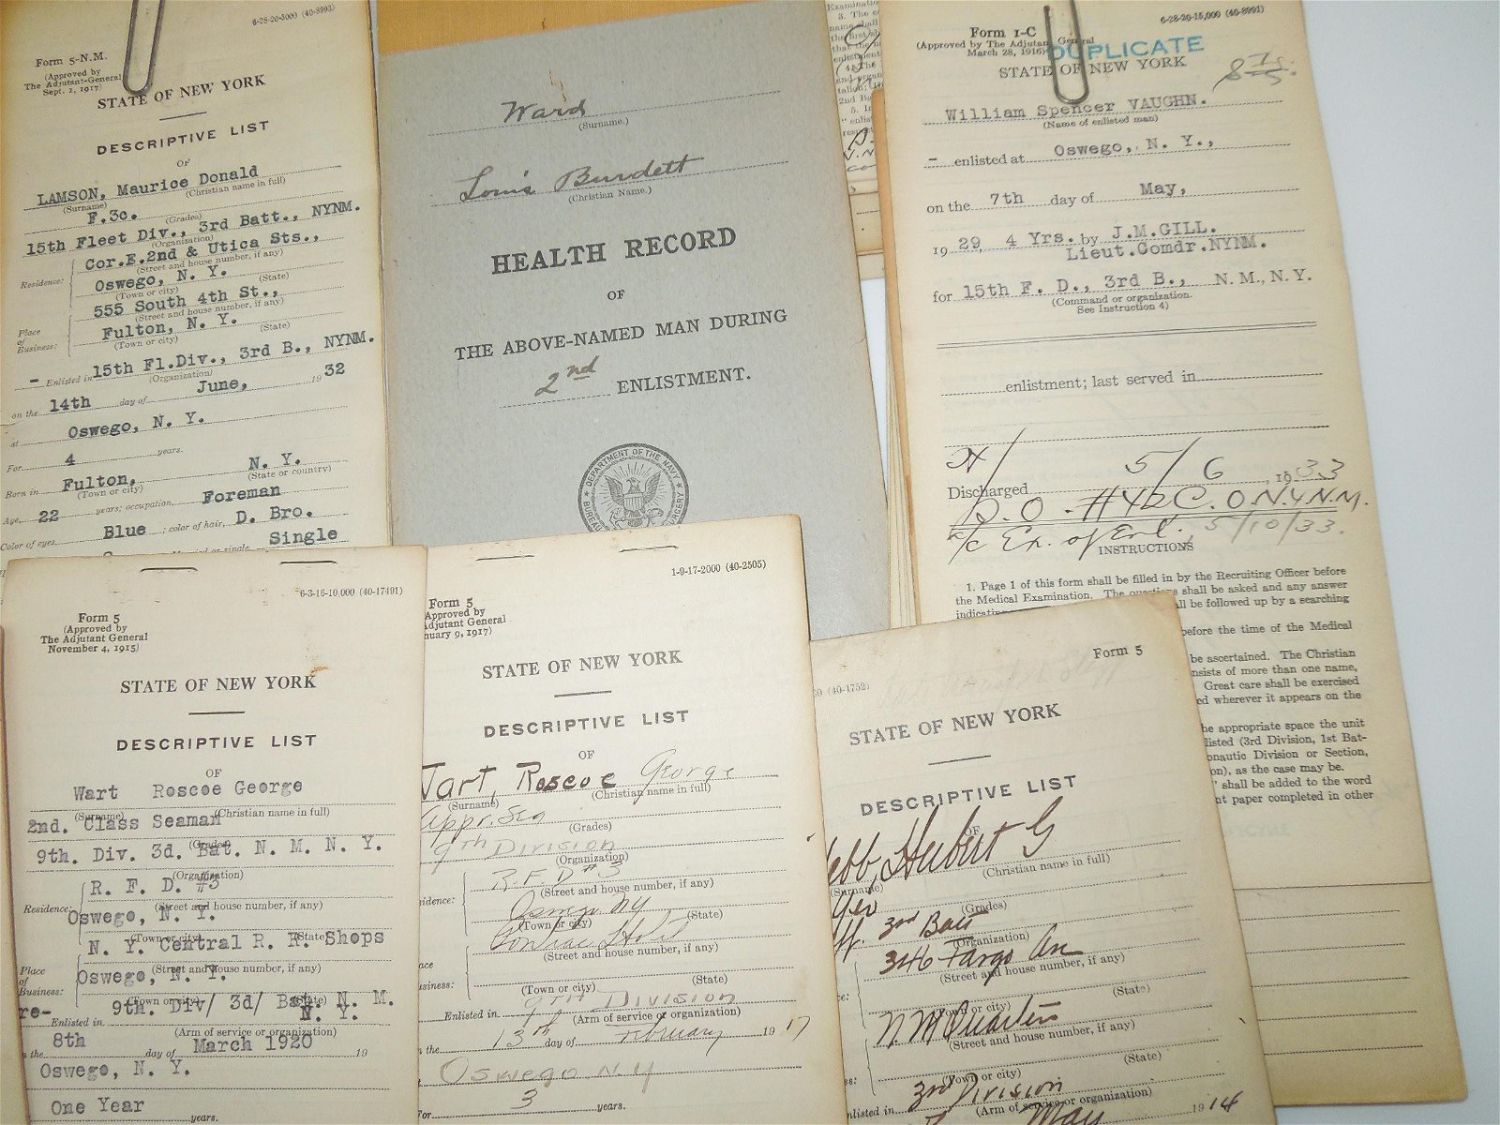 6-28-20-3000 (40-8993)
Form 5-N.M.
(Approved by
The Adjutant-General
Sept. 1, 1917)
STATE OF NEW YORK
DESCRIPTIVE LIST
OF
LAMSON, Maurice Donald
(Surname) (Christian name in full)
F.3c.
(Grades)
15th Fleet Div., 3rd Batt., NYNM.
(Organization)
Cor.E.2nd & Utica Sts.,
(Street and house number, if any)
Residence:
Oswego, N. Y.
(Town or city) (State)
555 South 4th St.,
(Street and house number, if any)
Place
of
Business:
Fulton, N. Y.
(Town or city) (State)
- Enlisted in 15th Fl.Div., 3rd B., NYNM.
(Organization)
on the 14th day of June, 19 32
at Oswego, N. Y.
For 4 years.
Born in Fulton, N. Y.
(Town or city) (State or country)
Age, 22 years; occupation, Foreman
Color of eyes, Blue ; color of hair, D. Bro.
Married or single, Single
Ward
(Surname.)
Louis Burdett
(Christian Name.)
HEALTH RECORD
OF
THE ABOVE-NAMED MAN DURING
2nd ENLISTMENT.
DEPARTMENT OF THE NAVY
6-28-20-15,000 (40-8991)
Form 1-C
(Approved by The Adjutant General
March 28, 1916)
DUPLICATE
STATE OF NEW YORK
William Spencer VAUGHN.
(Name of enlisted man)
- enlisted at Oswego, N. Y.,
on the 7th day of May,
19 29, 4 Yrs. by J.M.GILL.
Lieut.Comdr.NYNM.
for 15th F. D., 3rd B., N. M., N. Y.
(Command or organization.
See Instruction 4)
enlistment; last served in
5/6, 1933
Discharged
S.O. #42 C.O.N.Y.N.M.
a/c Ex. of Enl. 5/10/33.
INSTRUCTIONS
1. Page 1 of this form shall be filled in by the Recruiting Officer before
the Medical Examination. The questions shall be asked and any answer
be followed up by a searching
before the time of the Medical
be ascertained. The Christian
of more than one name,
Great care shall be exercised
wherever it appears on the
appropriate space the unit
(3rd Division, 1st Bat-
Division or Section,
as the case may be.
" shall be added to the word
paper completed in other
6-3-16-10,000 (40-17491)
Form 5
(Approved by
The Adjutant General
November 4, 1915)
STATE OF NEW YORK
DESCRIPTIVE LIST
OF
Wart Roscoe George
(Surname) (Christian name in full)
2nd. Class Seaman
(Grades)
9th. Div. 3d. Bat. N. M. N. Y.
(Organization)
R. F. D. #3
(Street and house number, if any)
Residence:
Oswego, N. Y.
(Town or city) (State)
N. Y. Central R. R. Shops
(Street and house number, if any)
Place
of
Business:
Oswego, N. Y.
(Town or city) (State)
re- 9th. Div/ 3d/ Bat. N. M.
N. Y.
Enlisted in
(Arm of service or organization)
the 8th day of March 1920 19
Oswego, N. Y.
One Year years.
1-9-17-2000 (40-2505)
Form 5
Approved by
Adjutant General
nuary 9, 1917)
STATE OF NEW YORK
DESCRIPTIVE LIST
OF
Wart, Roscoe George
(Surname) (Christian name in full)
Appr. Sea
(Grades)
9th Division
(Organization)
R.F.D #3
(Street and house number, if any)
Oswego NY
(Town or city) (State)
(Street and house number, if any)
(Town or city) (State)
9TH DIVISION
Enlisted in
(Arm of service or organization)
the 13th day of February 1917
Oswego N.Y
For 3 years.
(40-1752)
Form 5
STATE OF NEW YORK
DESCRIPTIVE LIST
OF
ebb, Herbert G
(Surname) (Christian name in full)
(Grades)
3rd Batt
(Organization)
346 Fargo Av
(Street and house number, if any)
(Town or city) (State)
N. M Quarters
(Street and house number, if any)
(Town or city) (State)
3rd Division
nlisted in
(Arm of service or organization)
May 1914